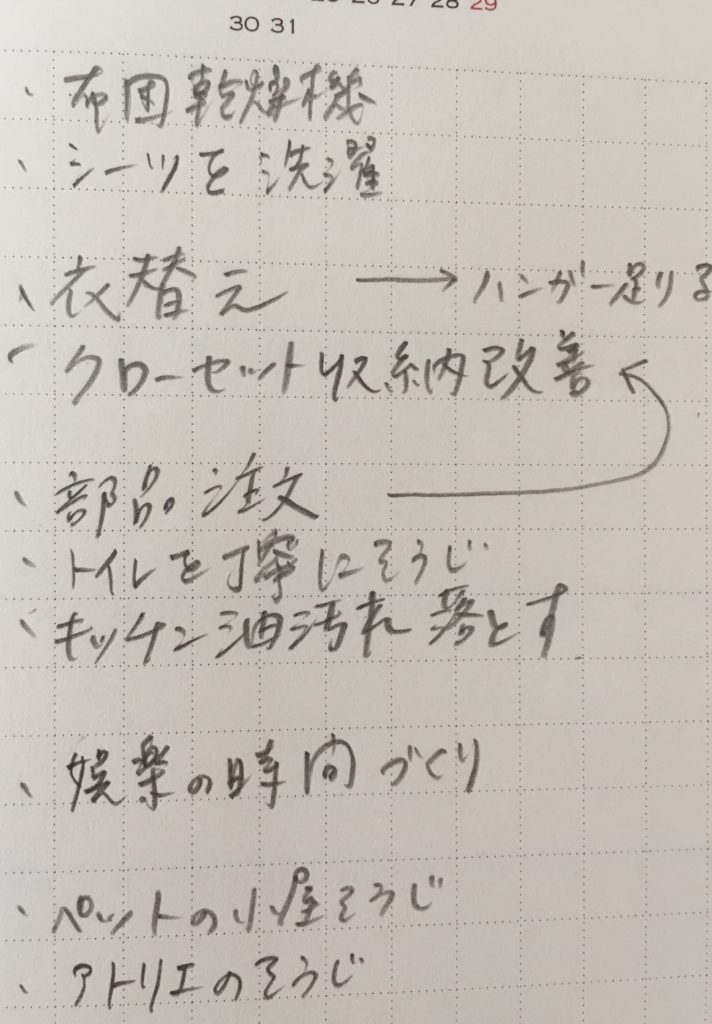 25 26 27 28 29
30 31
、布団乾燥機
、シーツを洗濯
、衣替え → ハンガー足りる
、クローゼット収納改善
、部品注文
、トイレを丁寧にそうじ
、キッチン油汚れ落とす
、娯楽の時間づくり
、ペットの小屋そうじ
、アトリエのそうじ